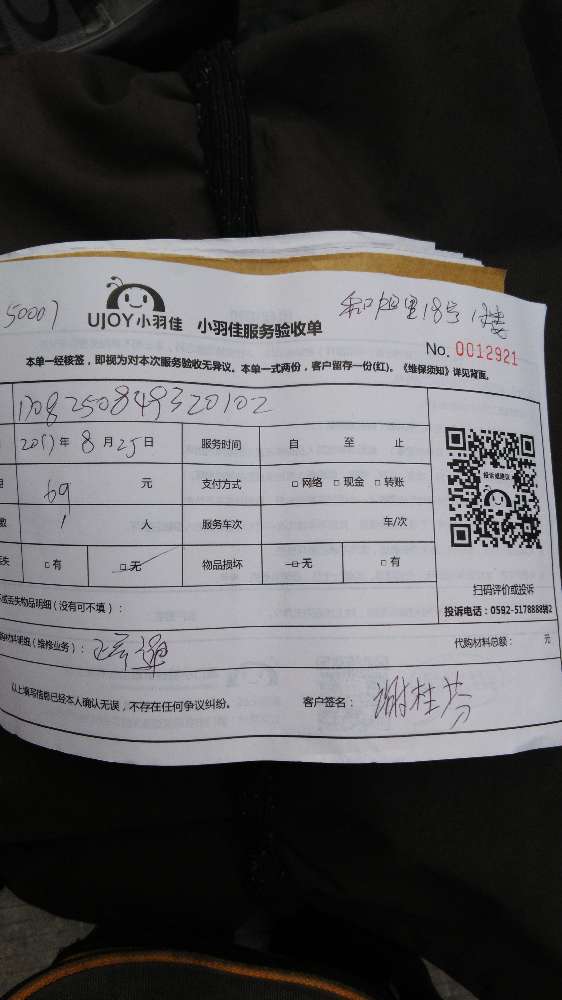 50007
UJOY小羽佳 小羽佳服务验收单
18号
No. 0012921
本单一经核签，即视为对本次服务验收无异议。本单一式两份，客户留存一份(红)。《维保须知》详见背面。
1708250849320102
2017年 8月25日 服务时间 自 至 止
69 元 支付方式 □网络 □现金 □转账
数 1 人 服务车次 年/次
丢失 □有 □无 物品损坏 □无 □有
投诉或建议
扫码评价或投诉
投诉电话：0592-5178888转2
坏或丢失物品明细（没有可不填）：
购材料明细（维修业务）： 代购材料总额： 元
以上填写信息已经本人确认无误，不存在任何争议纠纷。 客户签名： 谢桂芬